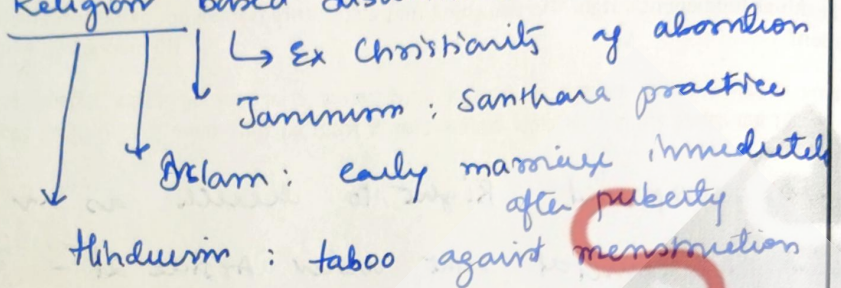 Religion based
↳ Ex Christianity of abortion
Jaininism : Santhara practice
Islam : early marriage immediately
after puberty
Hinduism : taboo against menstruation